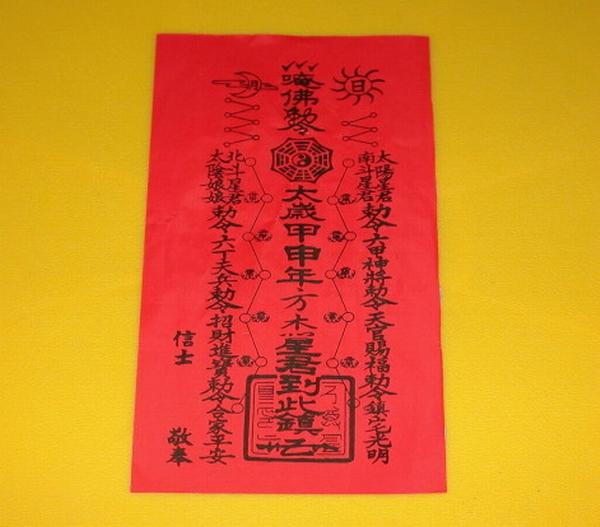 日
太陽星君
南斗星君
勅令六甲神將勅令天官賜福勅令鎮宅光明
唵佛勅令
太歲甲申年方杰星君到此鎮
月
北斗星君
太陰娘娘
勅令六丁天兵勅令招財進寶勅令合家平安
信士
敬奉